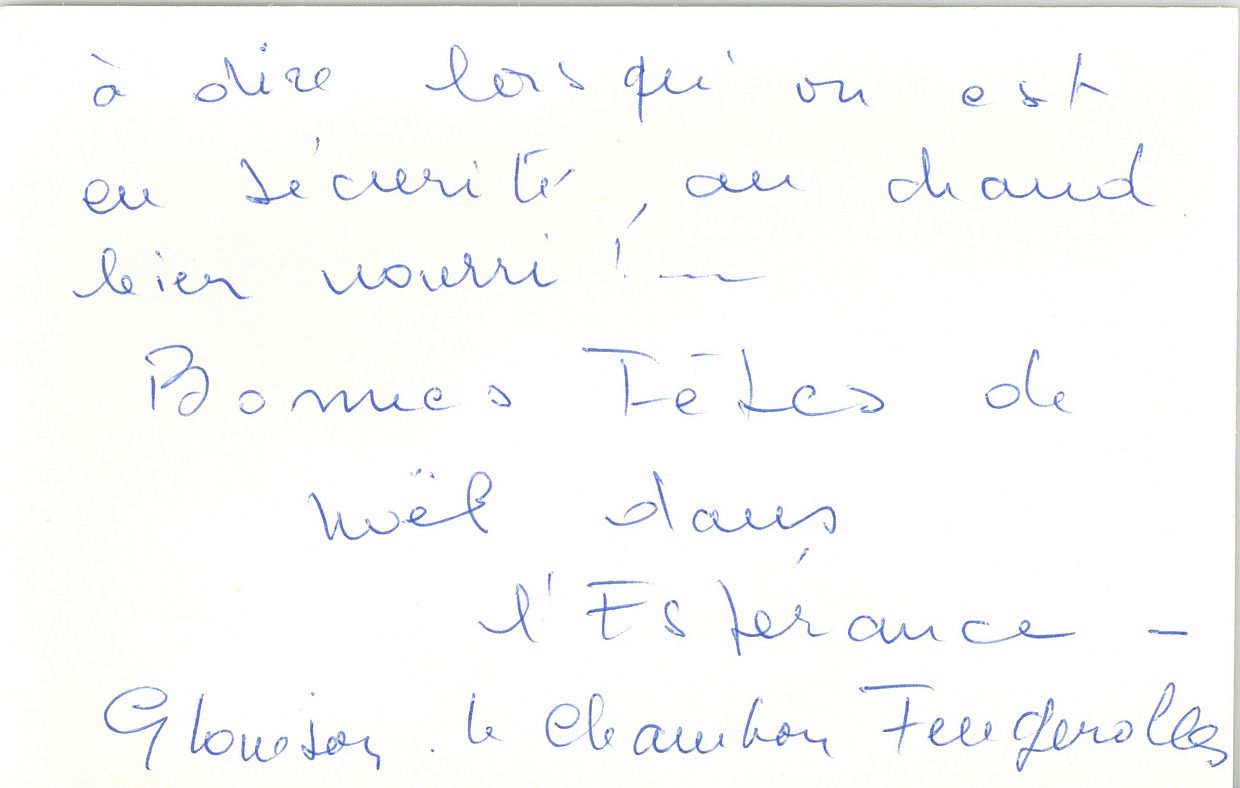 à dire lorsqu'on est
en sécurité, au chaud
bien nourri ! —
Bonnes Fêtes de
Noël dans
l'Espérance —
le Chambon Feugerolles